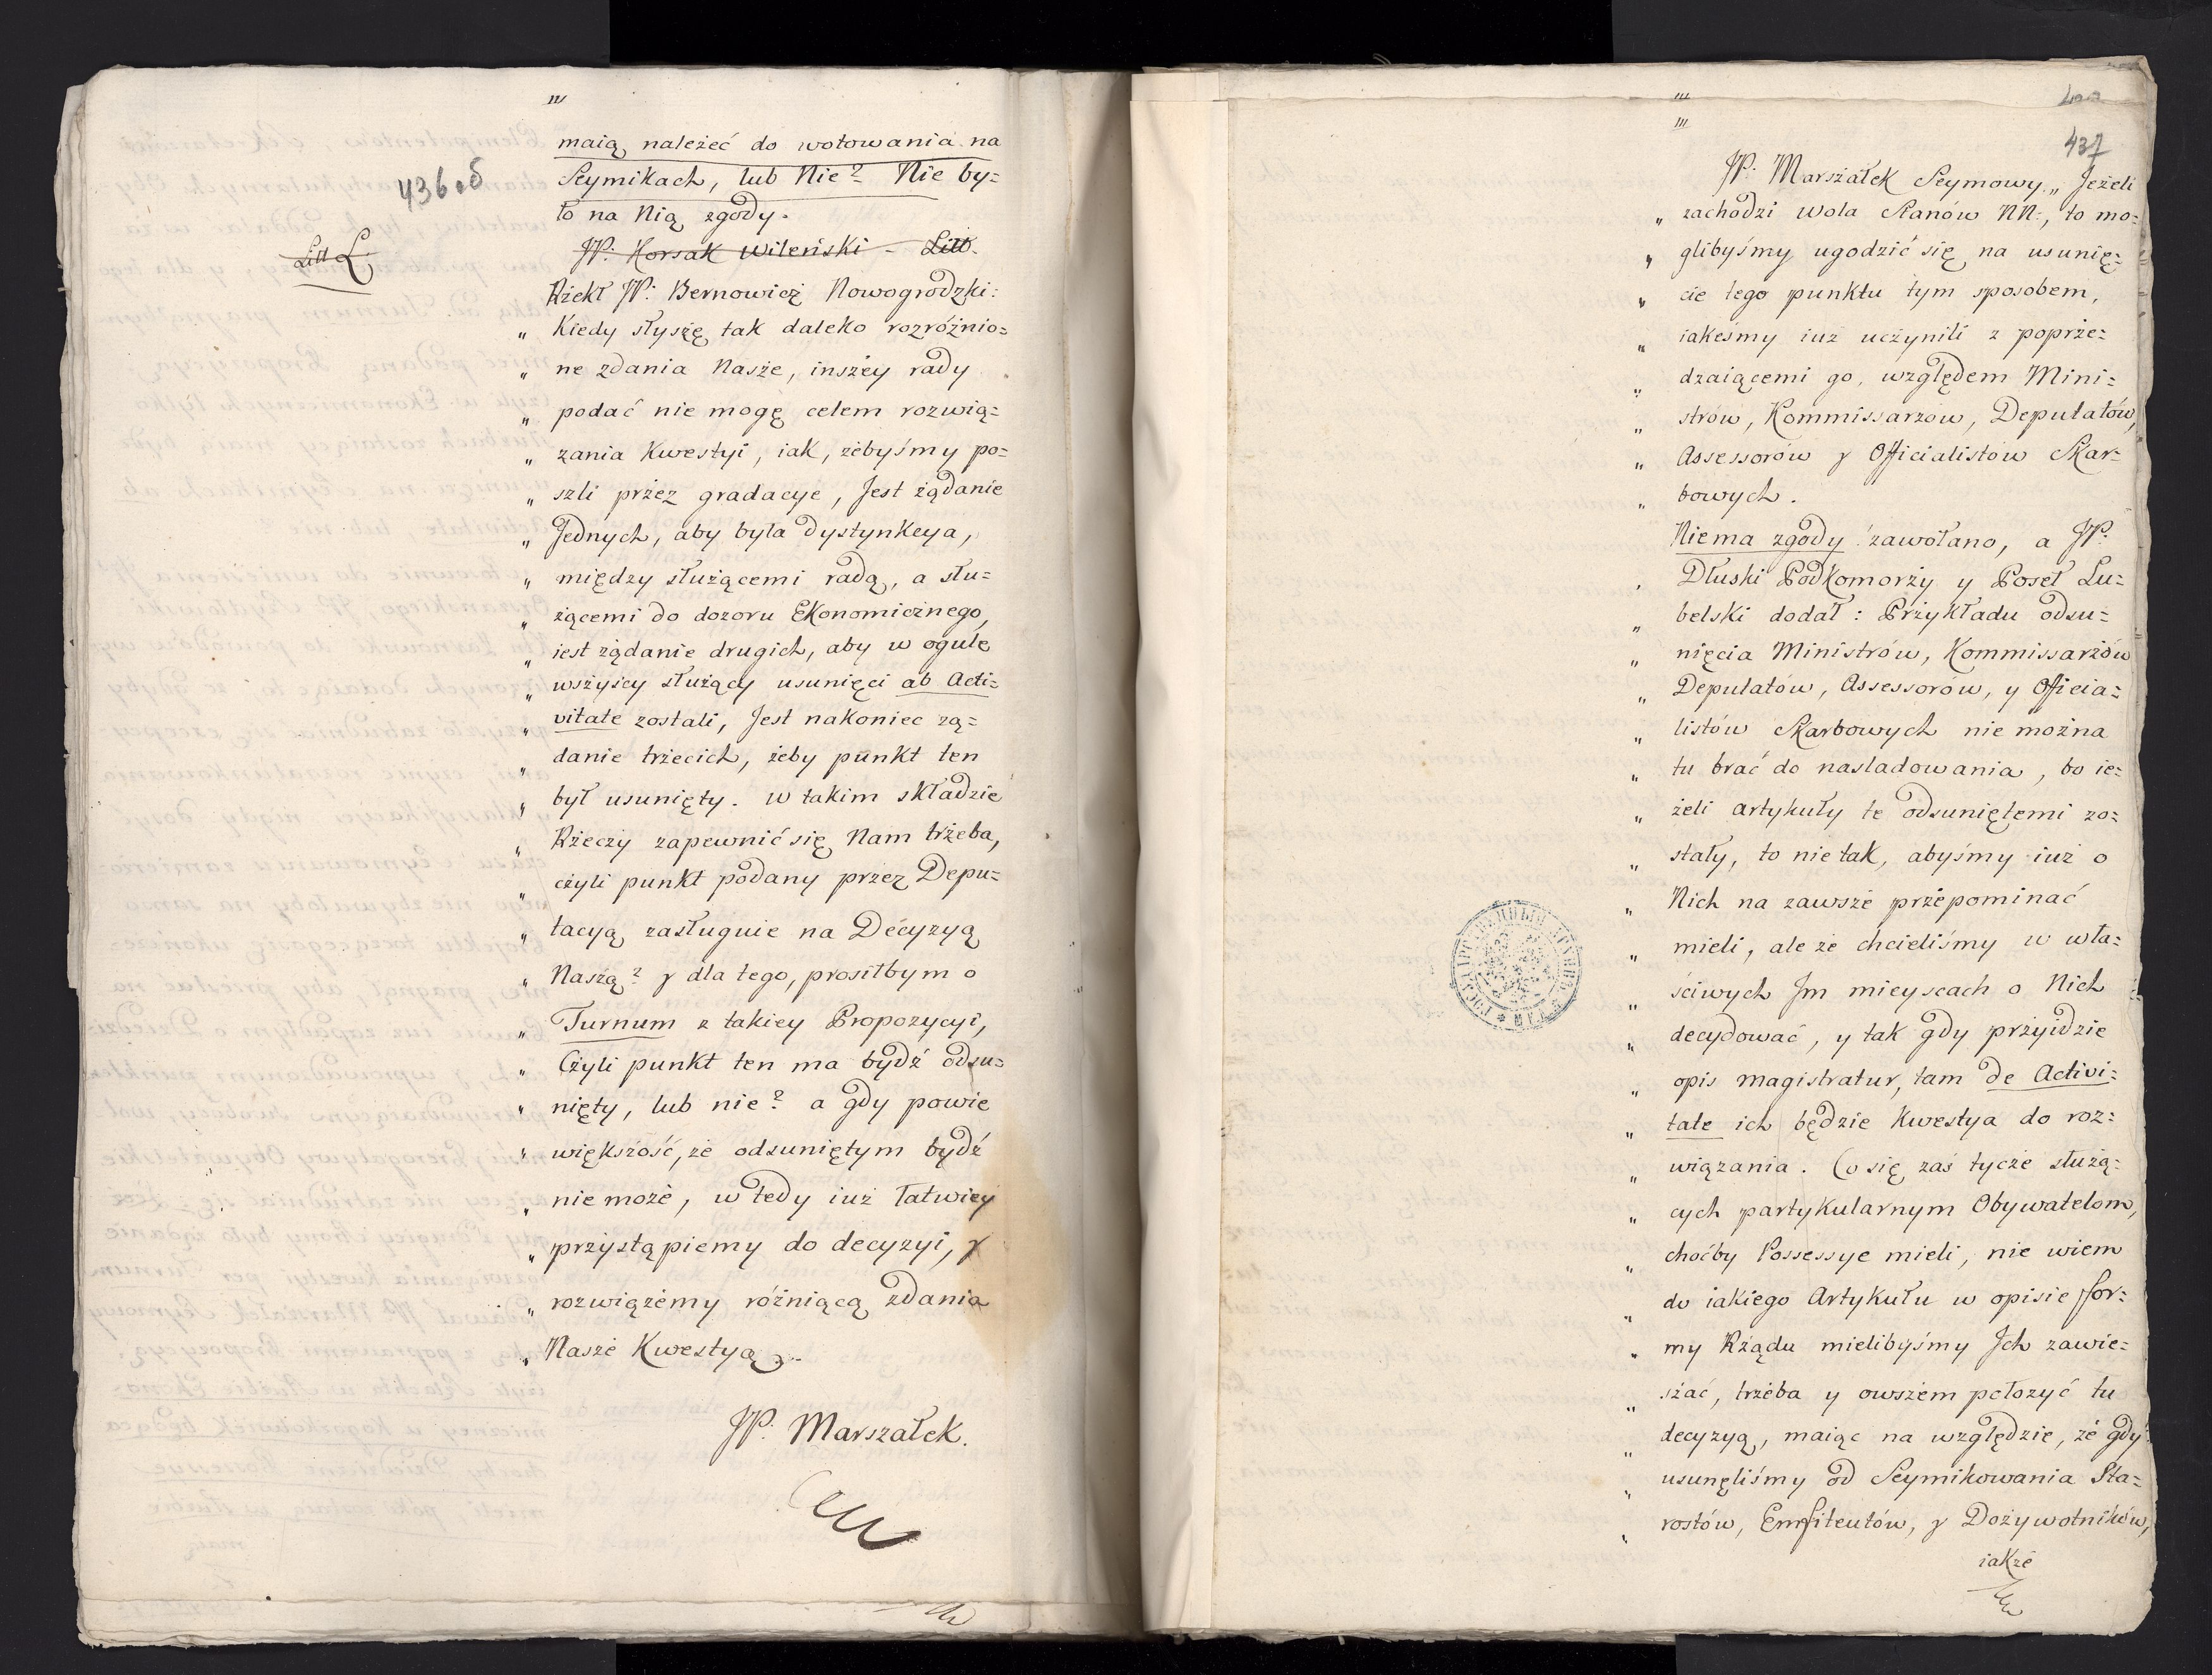 436 об
Litt L
maią należeć do wotowania na
Seymikach, lub Nie? Nie by=
ło na Nią zgody.
JP. Korsak Wileński - Litt.
Rzekł JP: Bernowicz Nowogrodzki:
„ Kiedy słyszę tak daleko rozróżnio=
„ ne zdania Nasze, inszey rady
„ podać nie mogę celem rozwią=
„ zania Kwestyi, iak, żebyśmy po=
„ szli przez gradacye, Jest żądanie
„ Jednych, aby była dystynkcya,
„ między służącemi radą, a słu=
„ żącemi do dozoru Ekonomicznego,
„ iest żądanie drugich, aby w ogule
„ wszyscy służący usunięci ab Acti=
„ vitate zostali, Jest nakoniec żą=
„ danie trzecich, żeby punkt ten
„ był usunięty. W takim składzie
„ Rzeczy zapewnić się Nam trzeba,
„ czyli punkt podany przez Depu=
„ tacyą zasługuie na Decyzyą
„ Naszą? y dla tego, prosiłbym o
„ Turnum z takiey Propozycyi,
„ Czyli punkt ten ma bydź odsu=
„ nięty, lub nie? a gdy powie
„ większość, że odsuniętym bydź
„ nie może, w tedy iuż łatwiey
„ przystąpiemy do decyzyi, y
„ rozwiążemy różniącą zdania
„ Nasze Kwestyą.
JP. Marszałek.
437
JP. Marszałek Seymowy „ Jeżeli
„ zachodzi wola Stanów NN:, to mo=
„ glibyśmy ugodzić się na usunię=
„ cie tego punktu tym sposobem,
„ iakeśmy iuż uczynili z poprze=
„ dzaiącemi go, względem Mini=
„ strów, Kommissarzow, Deputatów,
„ Assessorów y Officialistów Skar=
„ bowych.
Niema zgody zawołano, a JP.
„ Dłuski Podkomorzy y Poseł Lu=
„ belski dodał: Przykładu odsu=
„ nięcia Ministrów, Kommissarzów
„ Deputatów, Assessorów, y Officia=
„ listów Skarbowych nie można
„ tu brać do nasladowania, bo ie=
„ żeli artykuły te odsuniętemi zo=
„ stały, to nie tak, abyśmy iuż o
„ Nich na zawsze przepominać
„ mieli, ale że chcieliśmy w wła=
„ ściwych Jm mieyscach o Nich
„ decydować, y tak gdy przyidzie
„ opis magistratur, tam de Activi=
„ tate ich będzie Kwestya do roz=
„ wiązania. Co się zaś tycze służą=
„ cych partykularnym Obywatelom,
„ choćby Possessye mieli, nie wiem
„ do iakiego Artykułu w opisie for=
„ my Rządu mielibyśmy Jch zawie=
„ szać, trzeba y owszem położyć tu
„ decyzyą, maiąc na względzie, że gdy
„ usunęliśmy od Seymikowania Sta=
„ rostów, Emfiteutów, y Dożywotników,
iakże